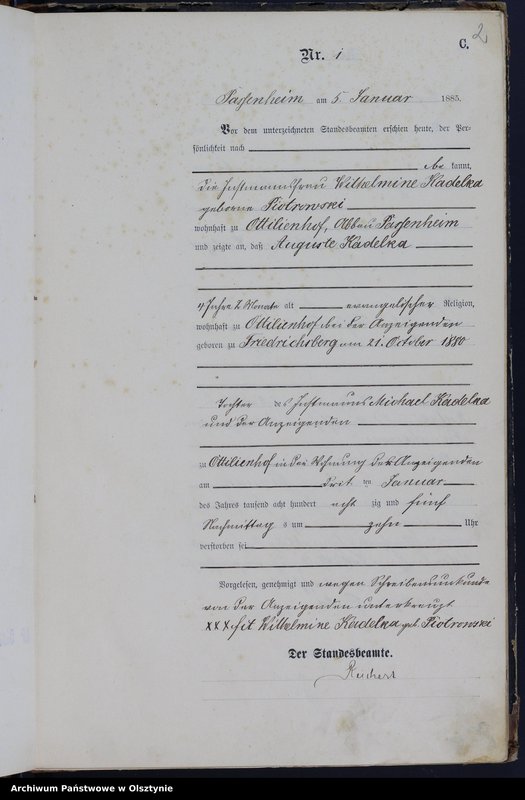 2
C.
Nr. 1
Passenheim am 5. Januar 1885.
Vor dem unterzeichneten Standesbeamten erschien heute, der Per-
sönlichkeit nach
be kannt,
die Instmannsfrau Wilhelmine Kadelka
geborne Piotrowski
wohnhaft zu Ottilienhof, Abbau Passenheim
und zeigte an, daß Auguste Kadelka
4 Jahre 2 Monate alt evangelischer Religion,
wohnhaft zu Ottilienhof bei der Anzeigenden
geboren zu Friedrichsberg am 21. October 1880
Tochter des Instmanns Michael Kadelka
und der Anzeigenden
zu Ottilienhof in der Wohnung der Anzeigenden
am drit ten Januar
des Jahres tausend acht hundert acht zig und fünf
Nachmittag s um zehn Uhr
verstorben sei
Vorgelesen, genehmigt und wegen Schreibensunkunde
von der Anzeigenden unterkreuzt
XXX Wilhelmine Kadelka geb. Piotrowski
Der Standesbeamte.
Reichert
Archiwum Państwowe w Olsztynie